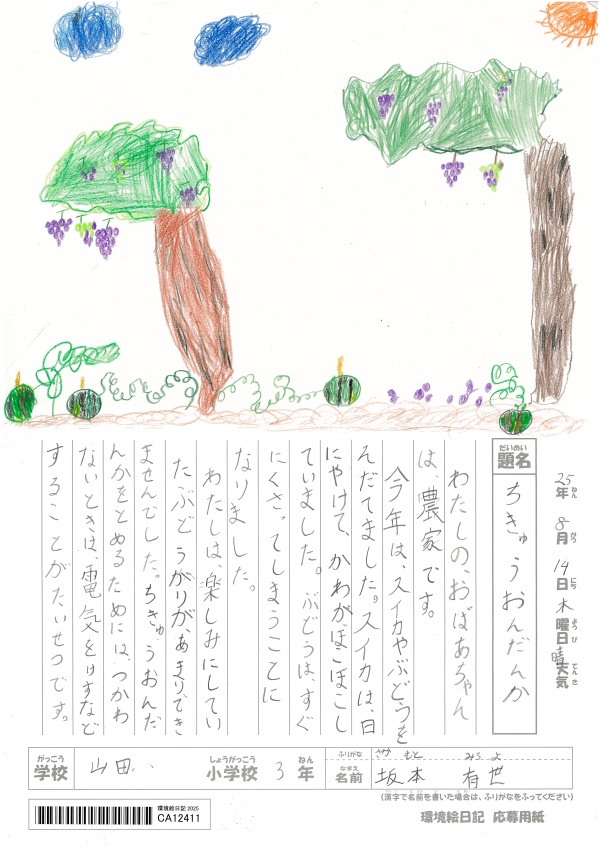 25年 8月 14日 木曜日 天気 晴
ねん がつ にち ようび てんき
だいめい
題名 ちきゅうおんだんか
わたしの、おばあちゃん
は、農家です。
今年は、スイカやぶどうを
んだてました。スイカは、日
にやけて、かわがぼこぼこし
ていました。ぶどうは、すぐ
にくさってしまうことに
なりました。
わたしは、楽しみにしてい
たぶどうがりが、あまりでき
ませんでした。ちきゅうおんだ
んかをとめるためには、つかわ
ないときは、電気をけすなど
することがたいせつです。
がっこう しょうがっこう ねん
学校 山田 小学校 3年
ふりがな さかもと みつよ
なまえ
名前 坂本 有世
(漢字で名前を書いた場合は、ふりがなをふってください)
環境絵日記 応募用紙
環境絵日記 2025
CA12411